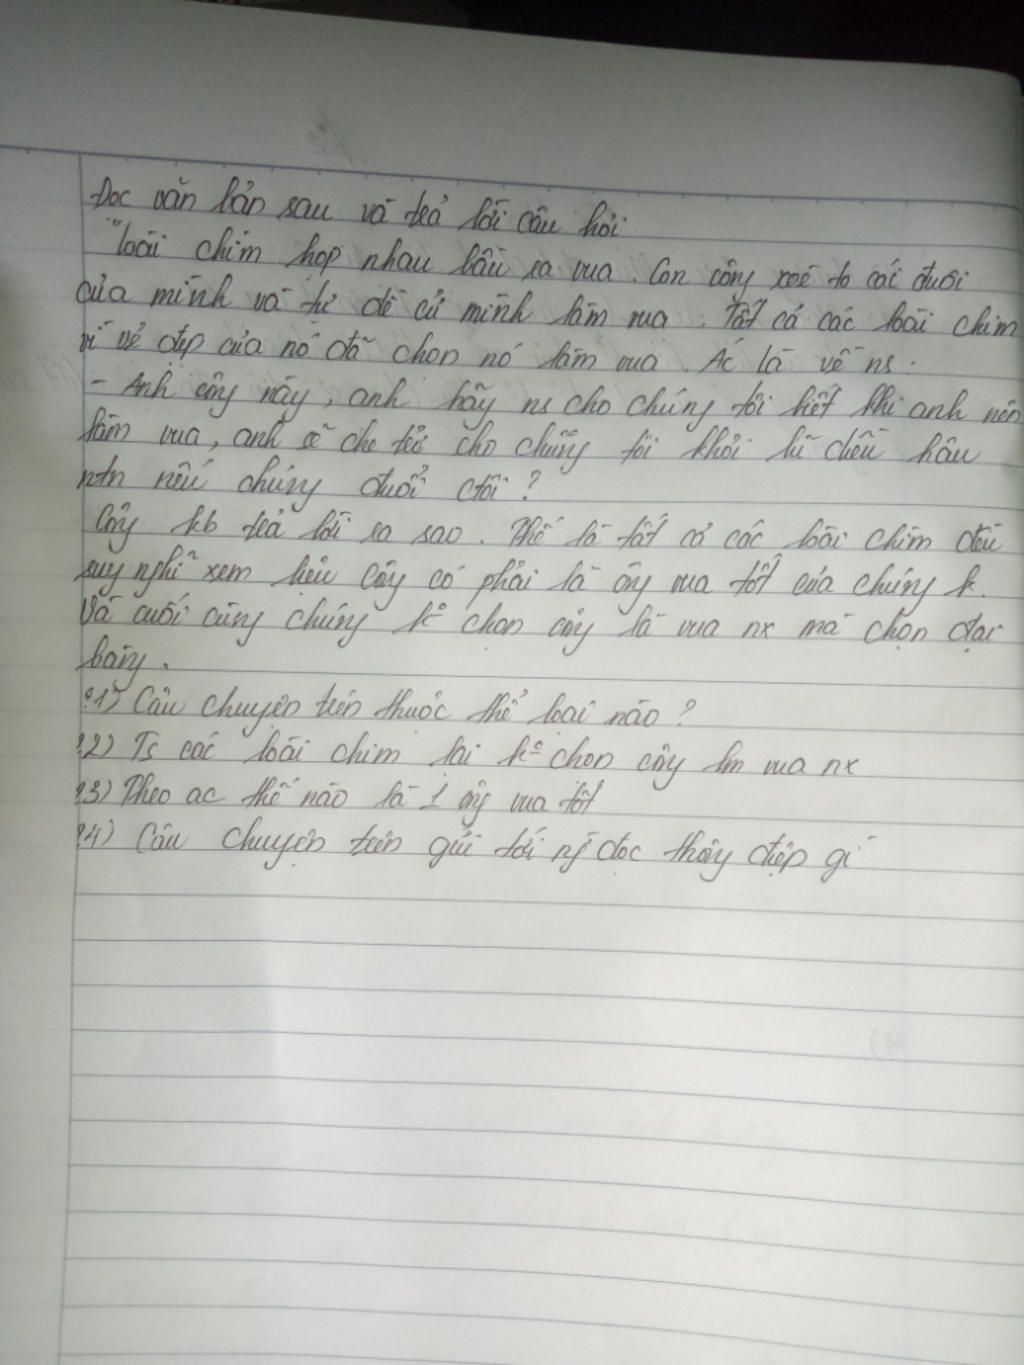 Đọc văn bản sau và trả lời câu hỏi
"Loài chim họp nhau bầu ra vua. Con công xoè to cái đuôi
của mình và tự đề cử mình làm vua. Tất cả các loài chim
vì vẻ đẹp của nó đã chọn nó làm vua. Ác là về ns.
- Anh công này, anh hãy ns cho chúng tôi biết khi anh nên
làm vua, anh sẽ che trở cho chúng tôi khỏi lũ diều hâu
ntn nếu chúng đuổi ctôi?
Công kb trả lời ra sao. Thế là tất cả các loài chim đều
suy nghĩ xem liệu công có phải là ông vua tốt của chúng k.
Và cuối cùng chúng k° chọn công là vua nx mà chọn đại
bàng.
?1) Câu chuyện trên thuộc thể loại nào?
?2) Ts các loài chim lại k° chọn công lm vua nx
?3) Theo ac thế nào là 1 ông vua tốt
?4) Câu chuyện trên gửi tới ng đọc thông điệp gì